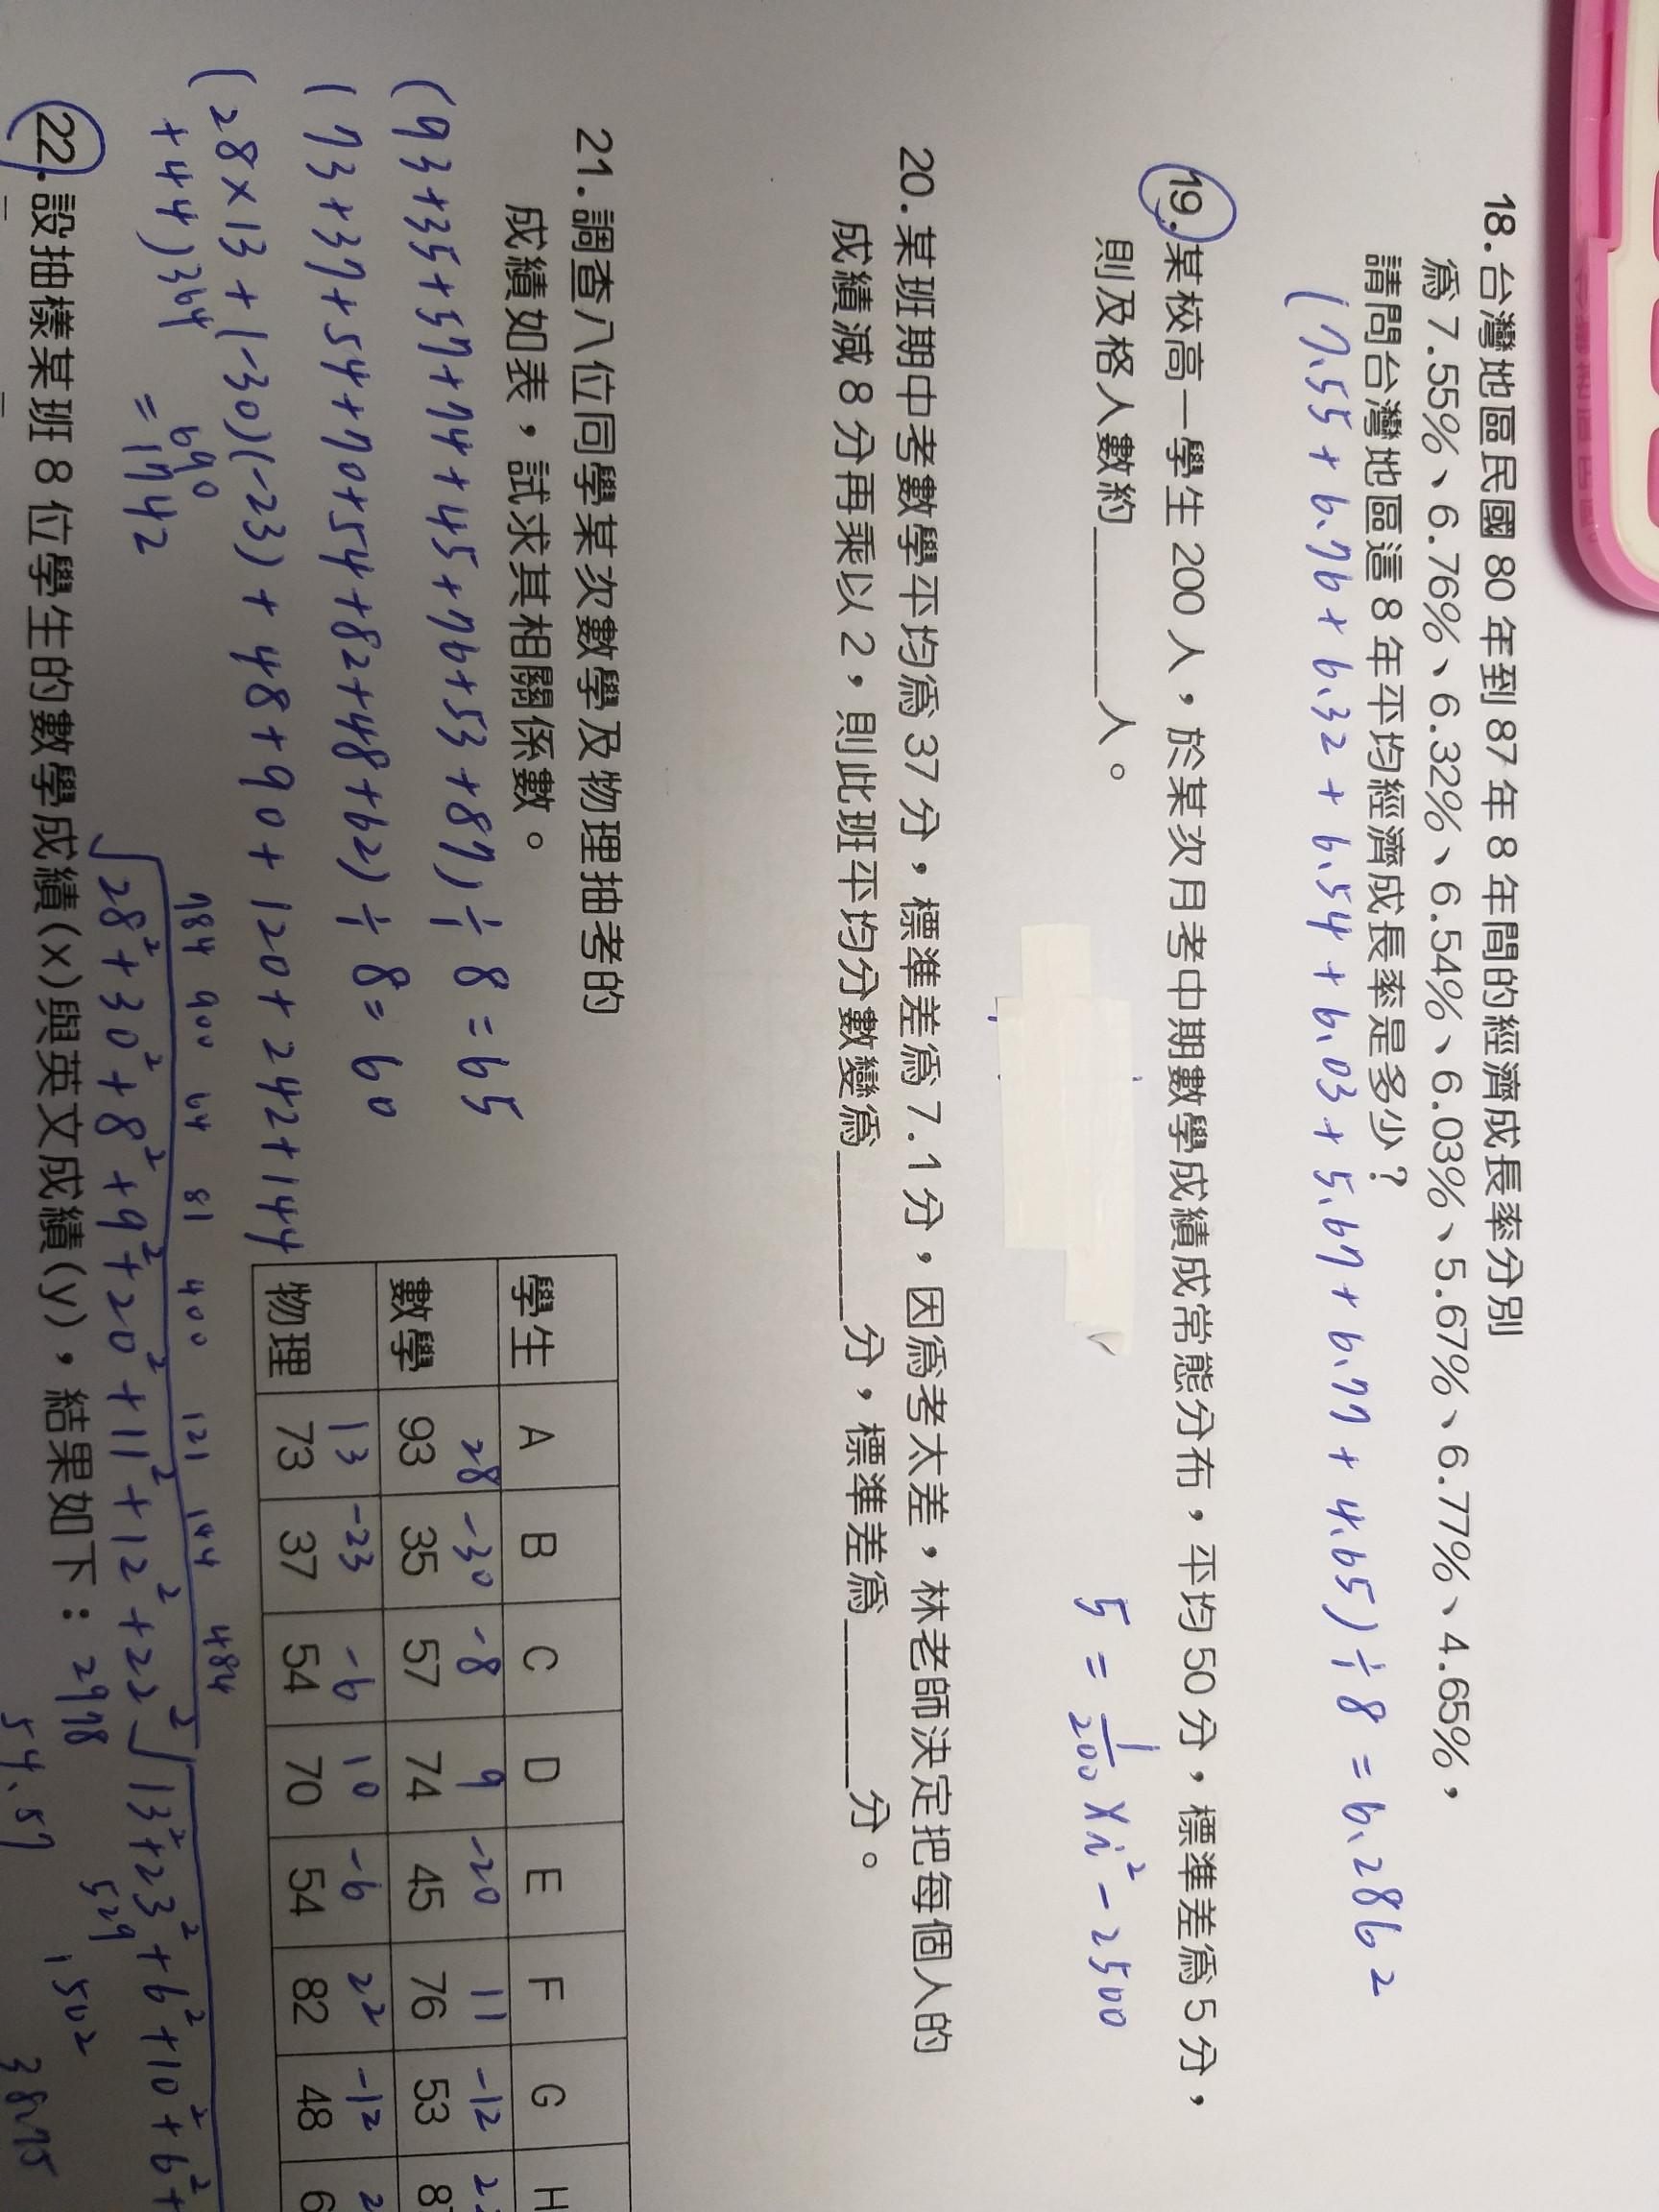 18.台灣地區民國 80 年到 87 年 8 年間的經濟成長率分別
為 7.55%、6.76%、6.32%、6.54%、6.03%、5.67%、6.77%、4.65%，
請問台灣地區這 8 年平均經濟成長率是多少？
(7.55 + 6.76 + 6.32 + 6.54 + 6.03 + 5.67 + 6.77 + 4.65) ÷ 8 = 6.2862
19.某校高一學生 200 人，於某次月考中期數學成績成常態分布，平均 50 分，標準差為 5 分，
則及格人數約______人。
5 = 1/200 × xi² - 2500
20.某班期中考數學平均為 37 分，標準差為 7.1 分，因為考太差，林老師決定把每個人的
成績減 8 分再乘以 2，則此班平均分數變為______分，標準差為______分。
21.調查八位同學某次數學及物理抽考的
成績如表，試求其相關係數。
(93+35+57+74+45+76+53+87) ÷ 8 = 65
(73+37+54+70+54+82+48+62) ÷ 8 = 60
(28×13 + (-30)(-23) + 48 + 90 + 120 + 242 + 144
+44) 364 690
= 1742
學生 A B C D E F G H
28 -30 -8 9 -20 11 -12
數學 93 35 57 74 45 76 53
13 -23 -6 10 -6 22 -12 2
物理 73 37 54 70 54 82 48
784 900 64 81 400 121 144 484
√28²+30²+8²+9²+20²+11²+12²+22² √13²+23²+6²+10²+6²+
529
22.設抽樣某班 8 位學生的數學成績(x)與英文成績(y)，結果如下：
2978
1502
54.57